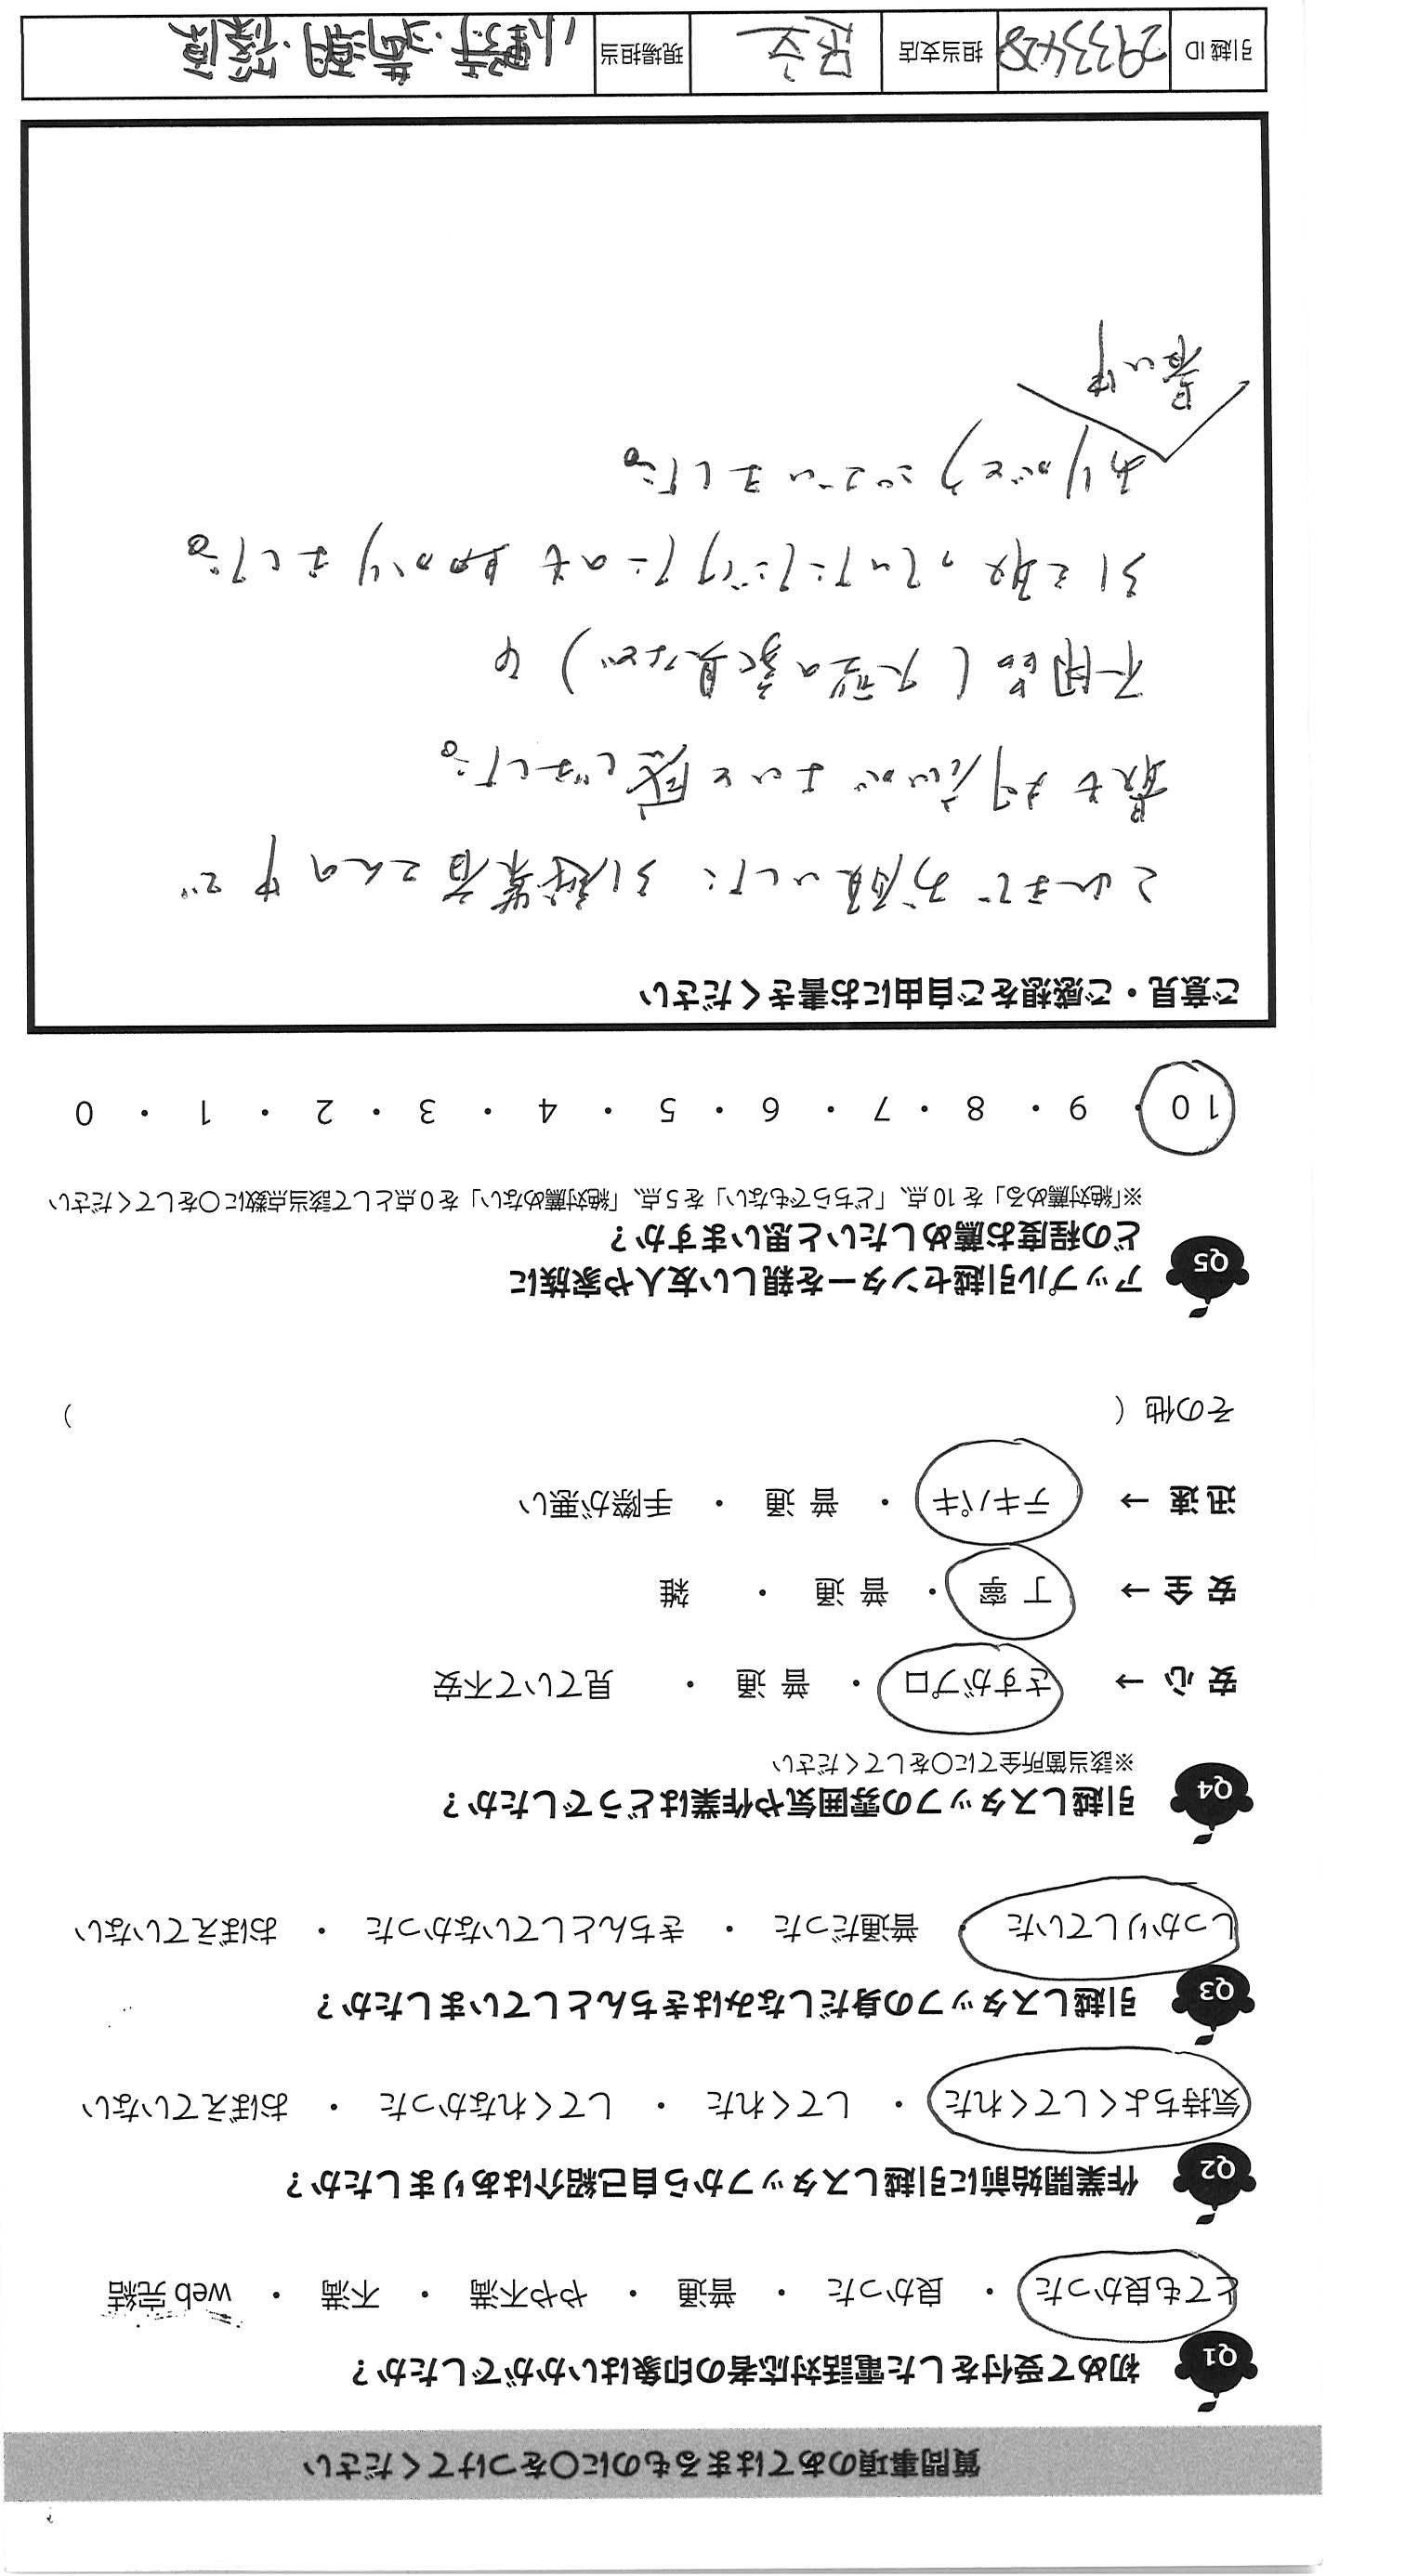 質問事項のあてはまるものに〇をつけてください
Q1 初めて受付をした電話対応者の印象はいかがでしたか？
とても良かった ・ 良かった ・ 普通 ・ やや不満 ・ 不満 ・ web 完結
Q2 作業開始前に引越しスタッフから自己紹介はありましたか？
気持ちよくしてくれた ・ してくれた ・ してくれなかった ・ おぼえていない
Q3 引越しスタッフの身だしなみはきちんとしていましたか？
しっかりしていた ・ 普通だった ・ きちんとしていなかった ・ おぼえていない
Q4 引越しスタッフの雰囲気や作業はどうでしたか？
※該当箇所全てに〇をしてください
安 心 → さすがプロ ・ 普 通 ・ 見ていて不安
安 全 → 丁 寧 ・ 普 通 ・ 雑
迅 速 → テキパキ ・ 普 通 ・ 手際が悪い
その他（ ）
Q5 アップル引越センターを親しい友人や家族に
どの程度お薦めしたいと思いますか？
※「絶対薦める」を 10 点、「どちらでもない」を 5 点、「絶対薦めない」を 0 点として該当点数に〇をしてください
10 ・ 9 ・ 8 ・ 7 ・ 6 ・ 5 ・ 4 ・ 3 ・ 2 ・ 1 ・ 0
ご意見・ご感想をご自由にお書きください
これまでお願いした引越業者さんの中で
最も対応がよいと感じました。
不用品（大型の家具など）の
引き取っていただけたのも助かりました。
ありがとうございました。
暑い中
引越 ID 2933428 担当支店 足立 現場担当 小野寺・黄瀬・篠原